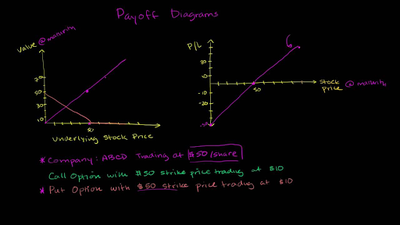 Payoff Diagrams
Value @ maturity
P/L
50
10
Underlying Stock Price
10
-10
-20
50
Stock Price @ maturity
* Company: ABCD Trading at $50/share
Call Option with $50 strike price trading at $10
* Put Option with $50 strike price trading at $10